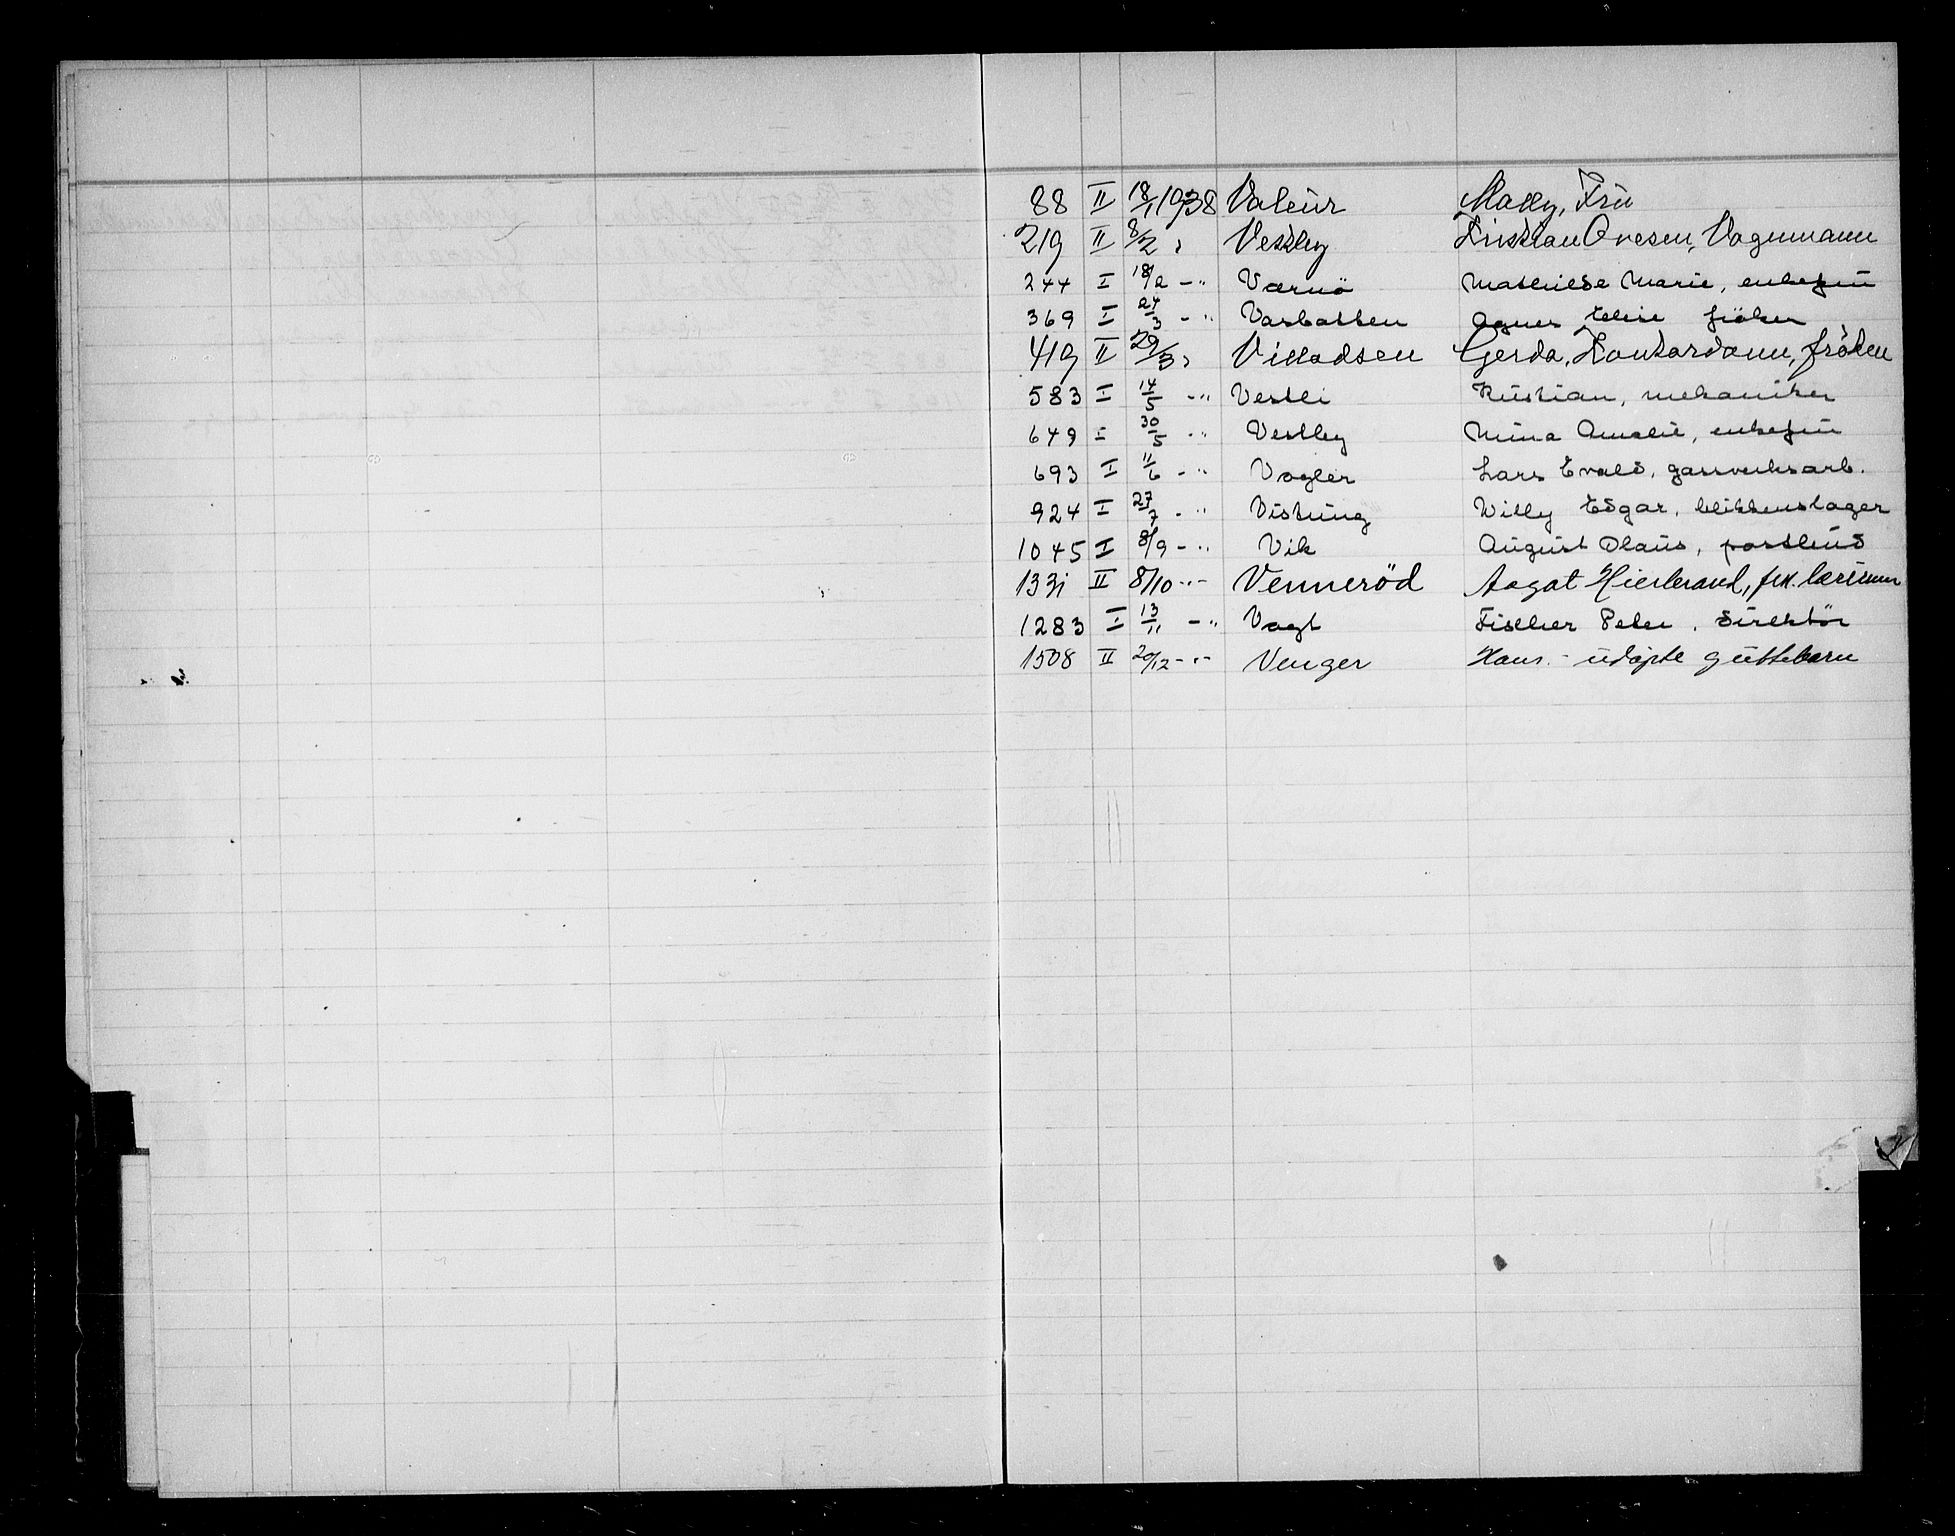 88 II 18/1 1938 Valeur Mally, Fru
219 II 8/2 " Vestby Kristian Ovesen, Vognmann
244 I 18/2 -" Værnö Mathilde Marie, enkefru
369 I 24/3 -" Vasbotten Agnes Elise fröken
419 II 29/3 " Villadsen Gerda, fröken
583 I 14/5 -" Vestli Kristian, mekaniker
649 I 30/5 -" Vestby Mina Amalie, enkefru
693 I 11/6 -" Vogler Lars Evald, gassverksarb.
924 I 27/7 -" Visting Willy Edgar, blikkenslager
1045 I 8/9 -" Vik August Olaus, postbud
1331 II 8/10 -"- Venneröd Aagot
1283 I 13/11 -" Vogt Fischer Peter, direktör
1508 II 20/12 -"- Venger Hans - udöpte guttebarn